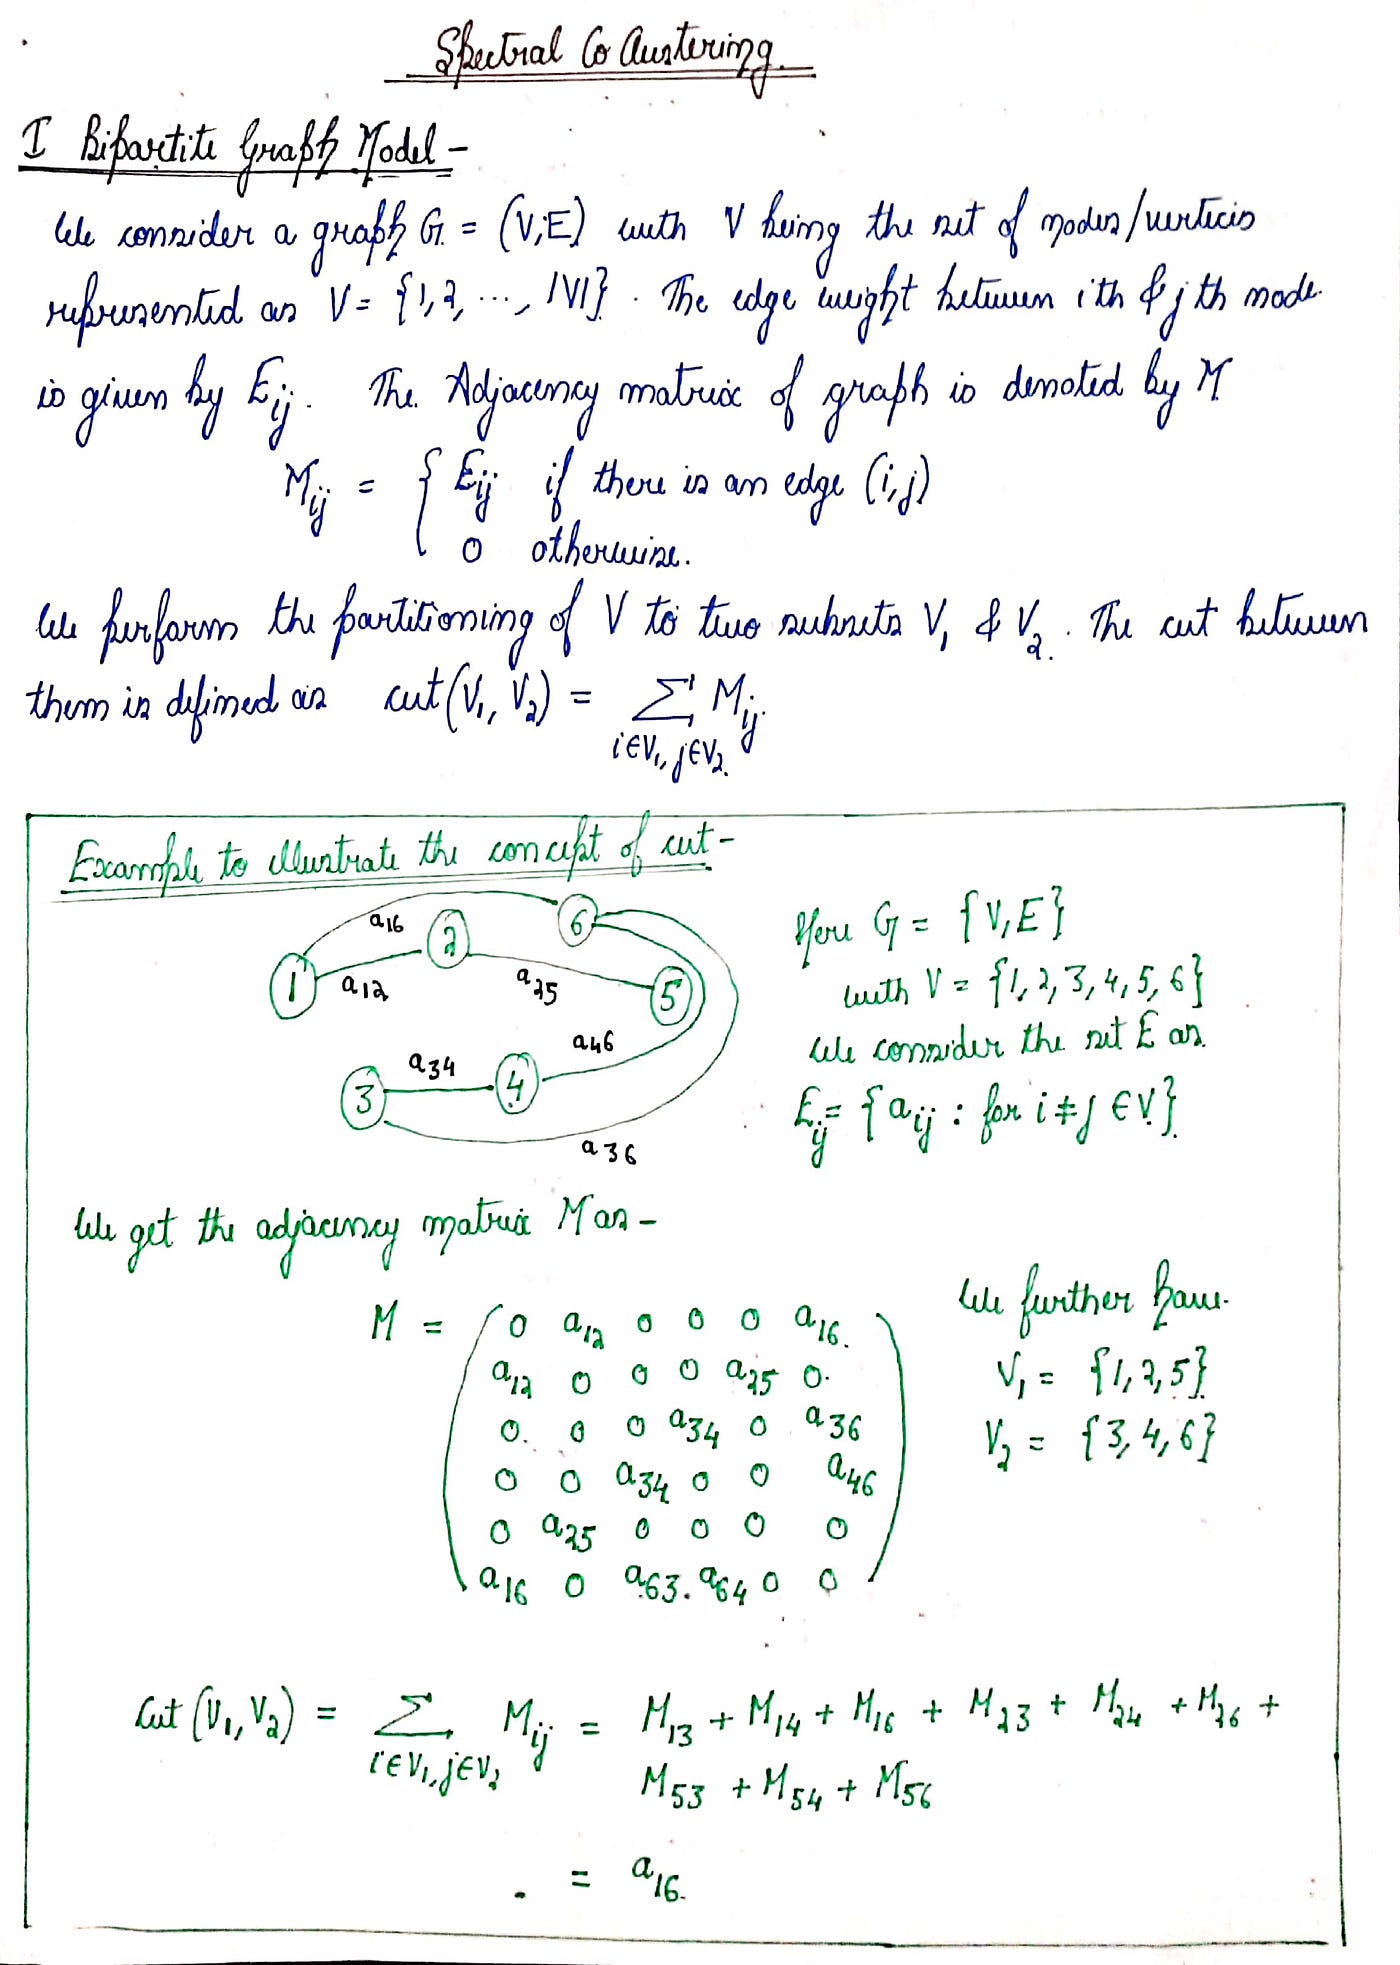 Spectral Co Clustering
I Bipartite Graph Model -
We consider a graph G = (V, E) with V being the set of nodes/verticis
represented as V = {1, 2, ..., |V|}. The edge weight between ith & j th node
is given by Eij. The Adjacency matrix of graph is denoted by M
Mij = { Eij if there is an edge (i,j)
0 otherwise.
We perform the partitioning of V to two subsets V1 & V2. The cut between
them is defined as cut(V1, V2) = Σ Mij
i∈V1, j∈V2
Example to illustrate the concept of cut -
a16
6
2
1
a12
a25
5
a46
a34
3
4
a36
Here G = {V, E}
with V = {1, 2, 3, 4, 5, 6}
We consider the set E as
Eij = {aij : for i ≠ j ∈ V}
We get the adjacency matrix M as -
M = ( 0 a12 0 0 0 a16
a12 0 0 0 a25 0
0 0 0 a34 0 a36
0 0 a34 0 0 a46
0 a25 0 0 0 0
a16 0 a63 a64 0 0 )
We further have
V1 = {1, 2, 5}
V2 = {3, 4, 6}
Cut (V1, V2) = Σ Mij = M13 + M14 + M16 + M23 + M24 + M26 +
i∈V1, j∈V2 M53 + M54 + M56
= a16.